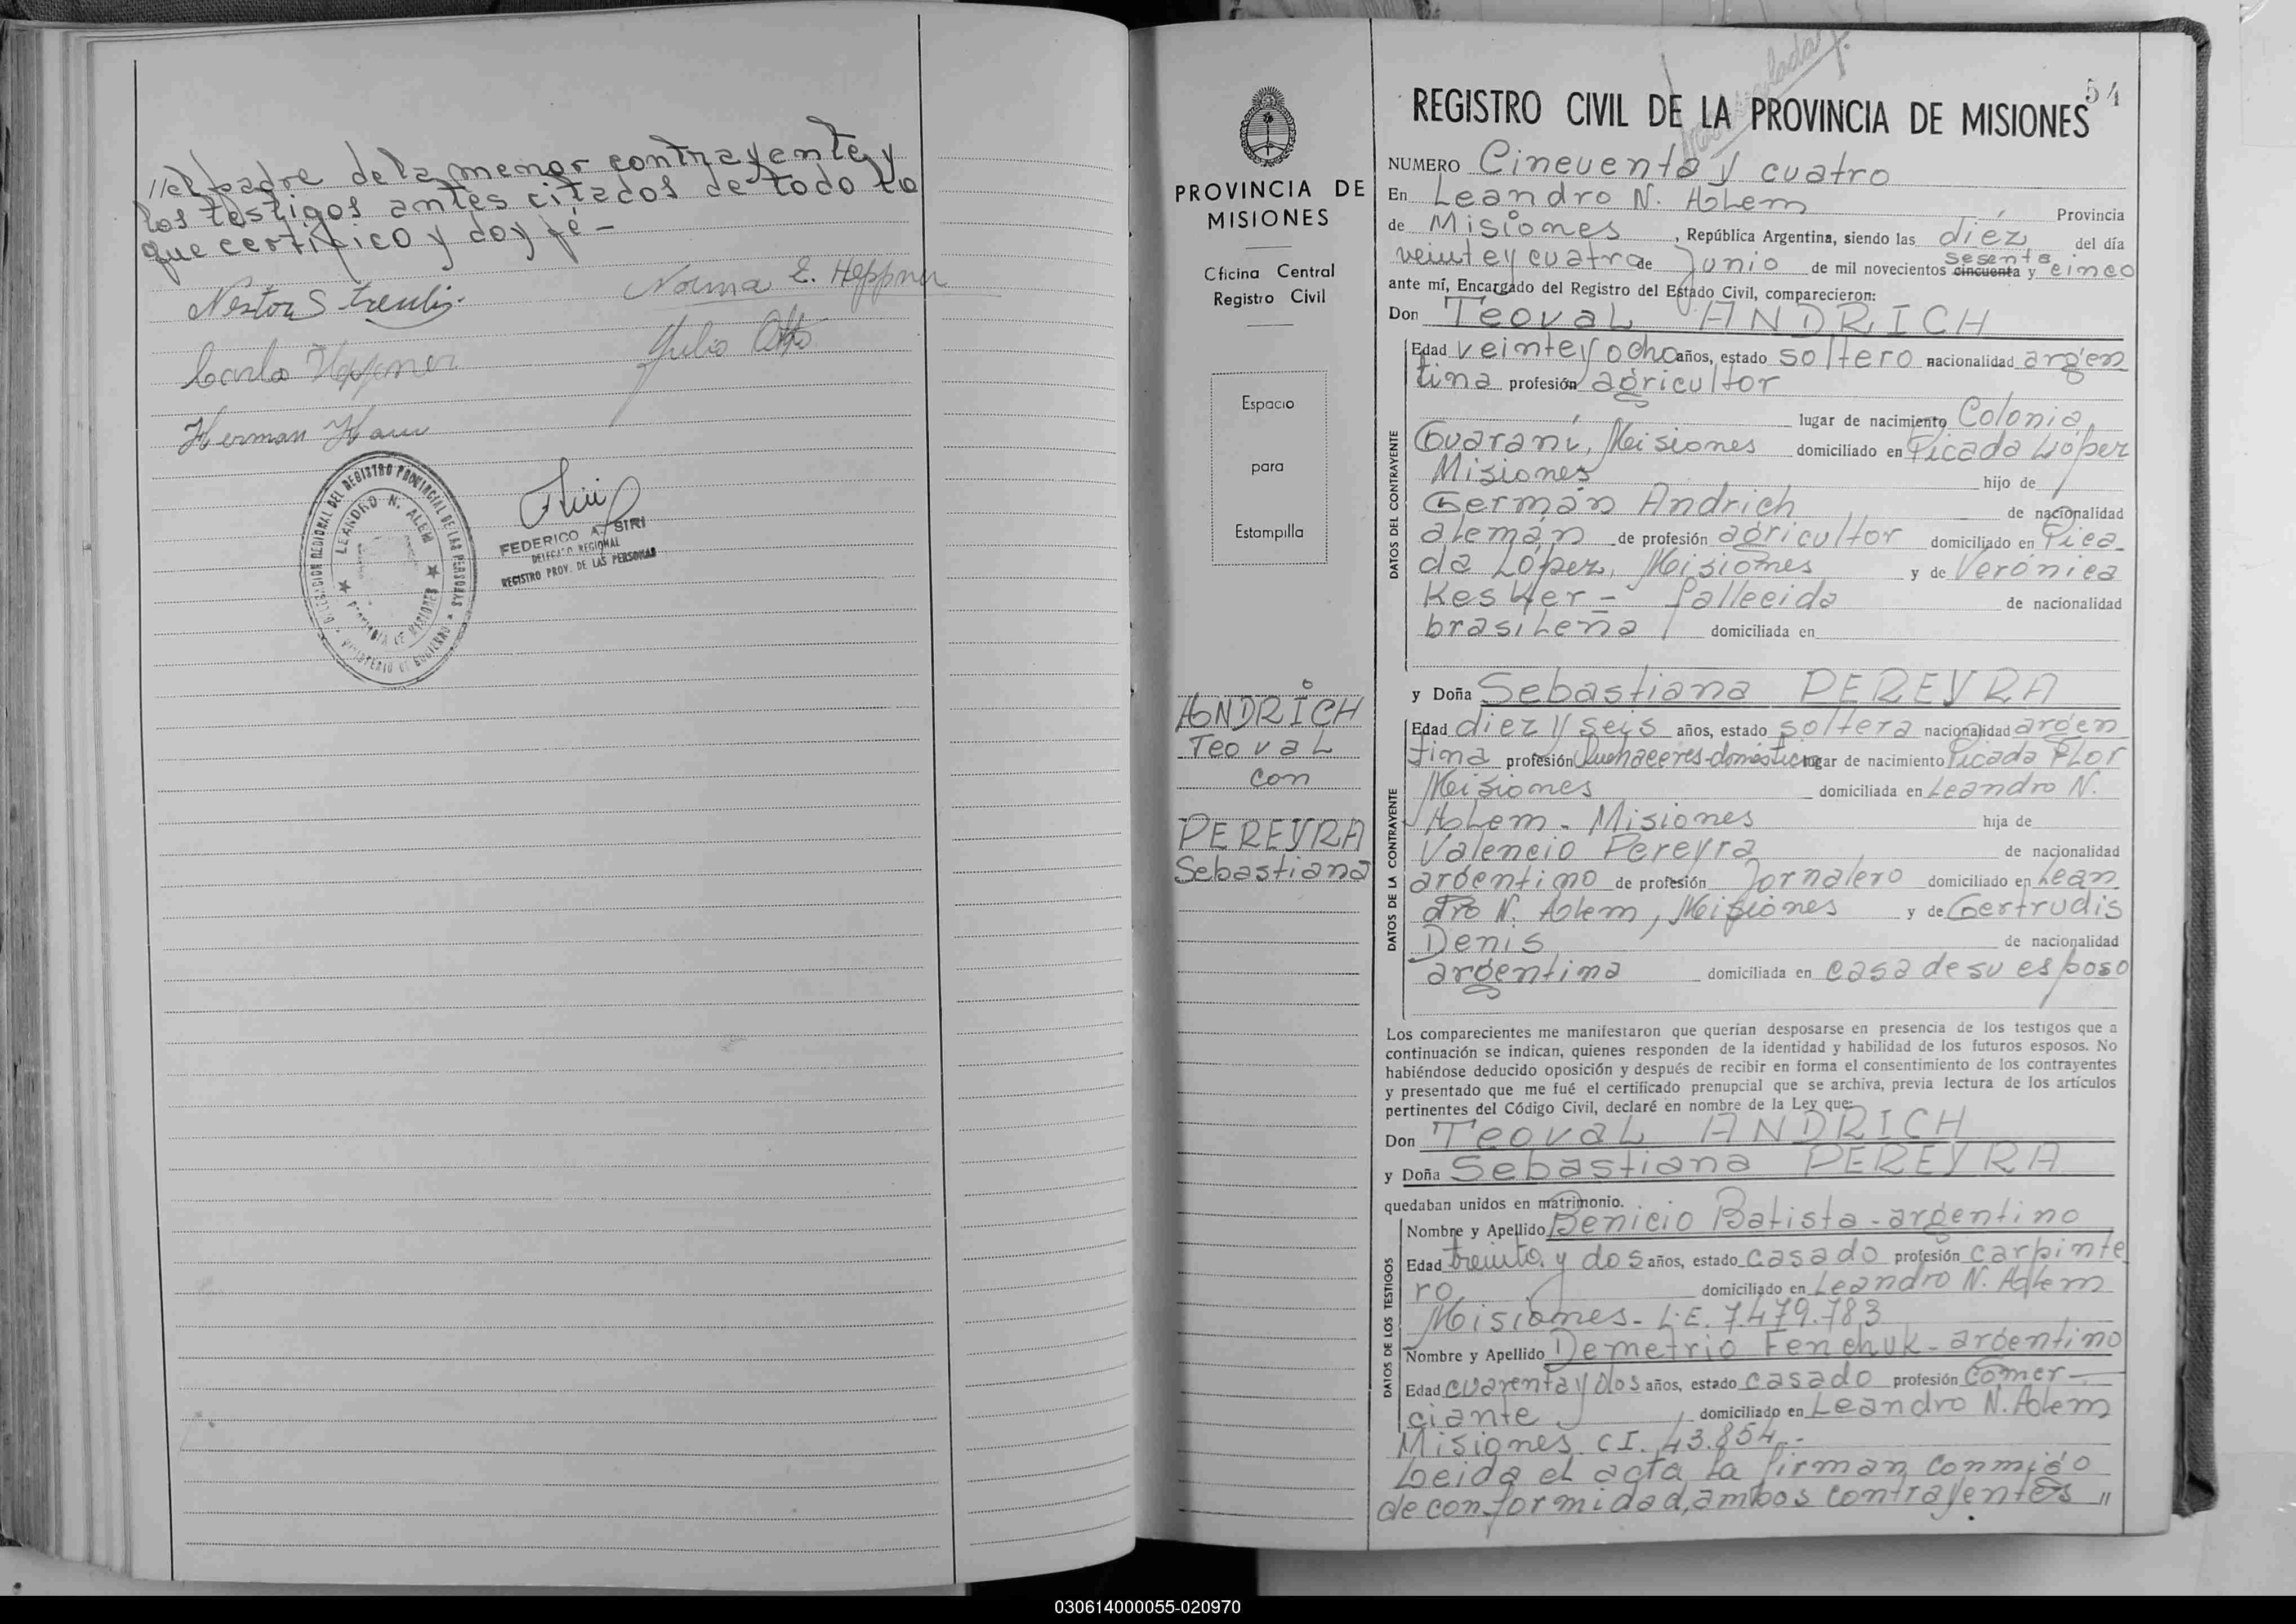 //el padre de la menor contrayente y
los testigos antes citados de todo lo
que certifico y doy fé -
Norma E. Heppner
Nestor S
Julio Otto
Carlo Heppner
Herman
DELEGACION REGIONAL DEL REGISTRO PROVINCIAL DE LAS PERSONAS
LEANDRO N. ALEM
PROVINCIA DE MISIONES
MINISTERIO DE GOBIERNO
FEDERICO A. SIRI
DELEGADO REGIONAL
REGISTRO PROV. DE LAS PERSONAS
PROVINCIA DE
MISIONES
Oficina Central
Registro Civil
Espacio
para
Estampilla
ANDRICH
Teoval
con
PEREYRA
Sebastiana
54
REGISTRO CIVIL DE LA PROVINCIA DE MISIONES
NUMERO Cincuenta y cuatro
En Leandro N. Alem Provincia
de Misiones, República Argentina, siendo las diez del día
veinte y cuatro de Junio de mil novecientos cincuenta sesenta y cinco
ante mí, Encargado del Registro del Estado Civil, comparecieron:
Don Teoval ANDRICH
DATOS DEL CONTRAYENTE
Edad veinte y ocho años, estado soltero nacionalidad argen
tina profesión agricultor
lugar de nacimiento Colonia
Guaraní, Misiones domiciliado en Picada López
Misiones hijo de
Germán Andrich de nacionalidad
alemán de profesión agricultor domiciliado en Pica
da López, Misiones y de Verónica
Kesker - fallecida de nacionalidad
brasileña domiciliada en
y Doña Sebastiana PEREYRA
DATOS DE LA CONTRAYENTE
Edad diez y seis años, estado soltera nacionalidad argen
tina profesión Quehaceres domésticos lugar de nacimiento Picada Flor
Misiones domiciliada en Leandro N.
Alem - Misiones hija de
Valencio Pereyra de nacionalidad
argentino de profesión Jornalero domiciliado en Lean
dro N. Alem, Misiones y de Gertrudis
Denis de nacionalidad
argentina domiciliada en casa de su esposo
Los comparecientes me manifestaron que querían desposarse en presencia de los testigos que a
continuación se indican, quienes responden de la identidad y habilidad de los futuros esposos. No
habiéndose deducido oposición y después de recibir en forma el consentimiento de los contrayentes
y presentado que me fué el certificado prenupcial que se archiva, previa lectura de los artículos
pertinentes del Código Civil, declaré en nombre de la Ley que:
Don Teoval ANDRICH
y Doña Sebastiana PEREYRA
quedaban unidos en matrimonio.
DATOS DE LOS TESTIGOS
Nombre y Apellido Benicio Batista - argentino
Edad treinta y dos años, estado casado profesión carpinte
ro domiciliado en Leandro N. Alem
Misiones - L.E. 7.479.783
Nombre y Apellido Demetrio Fenchuk - argentino
Edad cuarenta y dos años, estado casado profesión Comer-
ciante domiciliado en Leandro N. Alem
Misiones C.I. 43.854 -
Leida el acta la firman conmigo
de conformidad, ambos contrayentes //
030614000055-020970